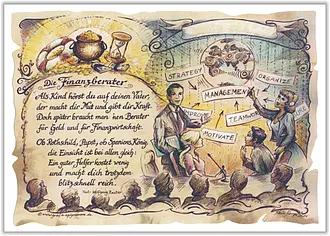 Die Finanzberater
Als Kind hörst du auf deinen Vater,
der macht dir Mut und gibt dir Kraft.
Doch später braucht man 'nen Berater
für Geld und für Finanzwirtschaft.
Ob Rothschild, Papst, ob Spaniens König,
die Einsicht ist bei allen gleich:
Ein guter Helfer kostet wenig
und macht dich trotzdem
blitzschnell reich.
STRATEGY
ORGANIZE
MANAGEMENT
TEAMWORK
MOTIVATE